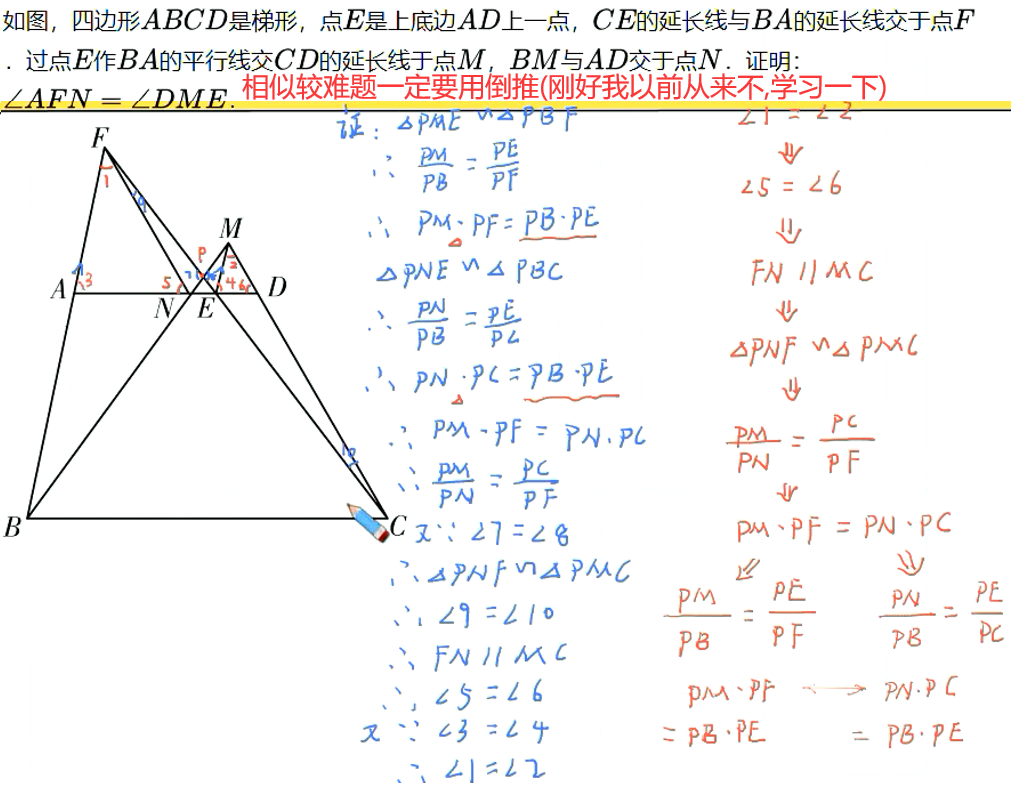 如图，四边形ABCD是梯形，点E是上底边AD上一点，CE的延长线与BA的延长线交于点F
．过点E作BA的平行线交CD的延长线于点M，BM与AD交于点N．证明：
∠AFN = ∠DME．
相似较难题一定要用倒推(刚好我以前从来不,学习一下)
F
1
9
M
P
2
A
3
5
7
8
4
6
D
N
E
10
B
C
证: △PME ∽ △PBF
∴ PM/PB = PE/PF
∴ PM·PF = PB·PE
△PNE ∽ △PBC
∴ PN/PB = PE/PC
∴ PN·PC = PB·PE
∴ PM·PF = PN·PC
∴ PM/PN = PC/PF
又∵ ∠7 = ∠8
∴ △PNF ∽ △PMC
∴ ∠9 = ∠10
∴ FN // MC
∴ ∠5 = ∠6
又∵ ∠3 = ∠4
∴ ∠1 = ∠2
∠1 = ∠2
⇓
∠5 = ∠6
⇓
FN // MC
⇓
△PNF ∽ △PMC
⇓
PM/PN = PC/PF
⇓
PM·PF = PN·PC
⇙ ⇘
PM/PB = PE/PF PN/PB = PE/PC
PM·PF ⟷ PN·PC
= PB·PE = PB·PE